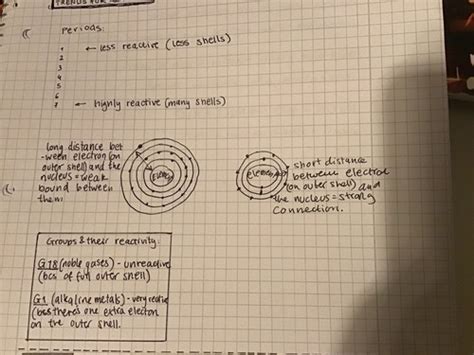 TRENDS FOR
Periods:
1 ← less reactive (less shells)
2
3
4
5
6
7 ← highly reactive (many shells)
long distance bet
-ween electron (on
outer shell) and the
nucleus = weak
bound between
them.
element
short distance
between electron
(on outer shell) and
the nucleus = strong
connection.
element
Groups & their reactivity:
G 18 (noble gases) - unreactive
(bcs of full outer shell)
G1 (alkaline metals) - very reactive
(bcs theres one extra electron
on the outer shell.